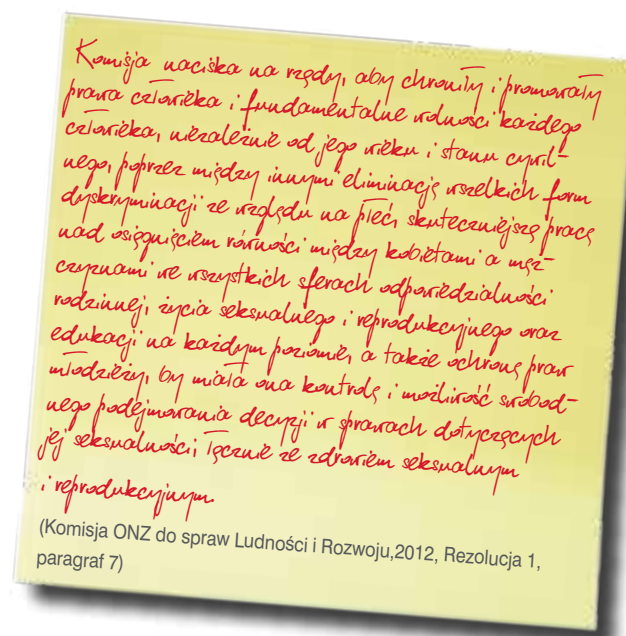 Komisja naciska na rządy, aby chroniły i promowały
prawa człowieka i fundamentalne wolności każdego
człowieka, niezależnie od jego wieku i stanu cywil-
nego, poprzez między innymi eliminację wszelkich form
dyskryminacji ze względu na płeć, skuteczniejszą pracę
nad osiągnięciem równości między kobietami a męż-
czyznami we wszystkich sferach odpowiedzialności
rodzinnej, życia seksualnego i reprodukcyjnego oraz
edukacji na każdym poziomie, a także ochronę praw
młodzieży, by miała ona kontrolę i możliwość swobod-
nego podejmowania decyzji w sprawach dotyczących
jej seksualności, łącznie ze zdrowiem seksualnym
i reprodukcyjnym.
(Komisja ONZ do spraw Ludności i Rozwoju,2012, Rezolucja 1,
paragraf 7)